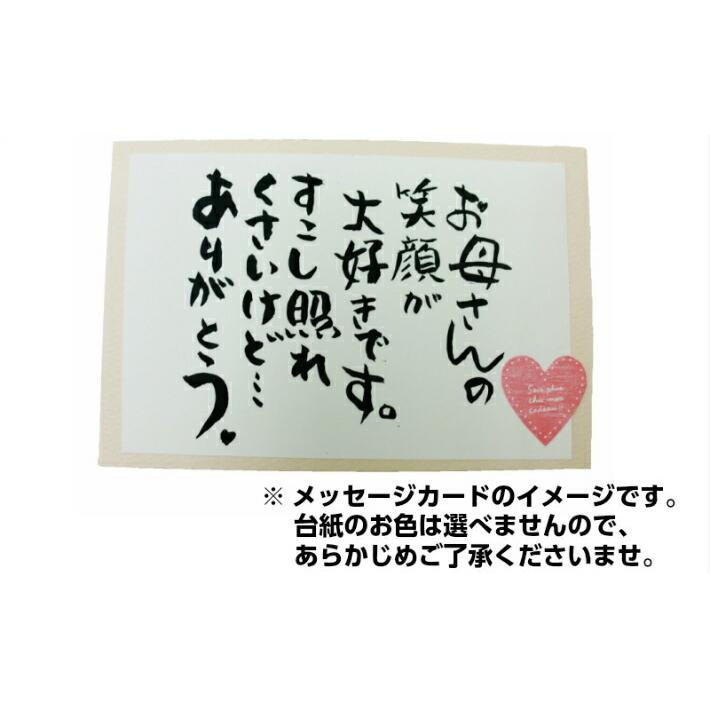 お母さんの
笑顔が
大好きです。
すこし照れ
くさいけど…
ありがとう♥
※ メッセージカードのイメージです。
台紙のお色は選べませんので、
あらかじめご了承くださいませ。